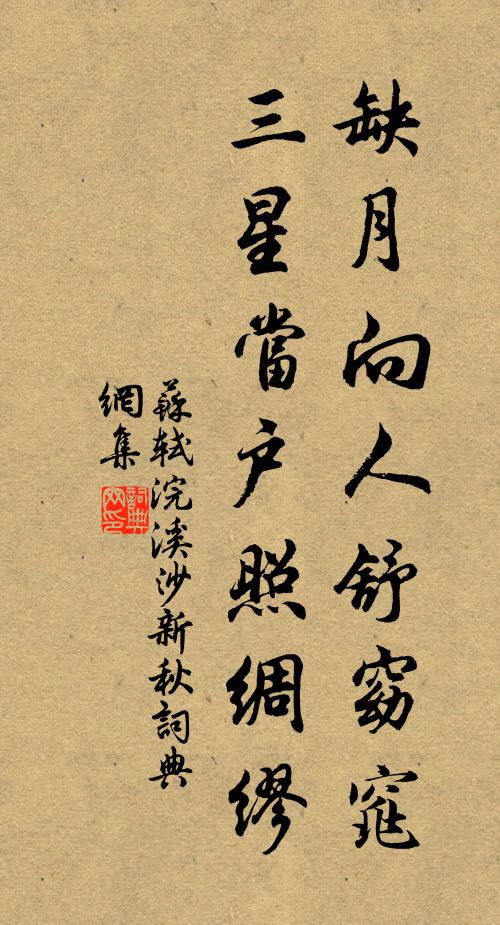 缺月向人舒窈窕
三星當户照綢繆
蘇軾浣溪沙新秋詞典
網集
詞典
网印